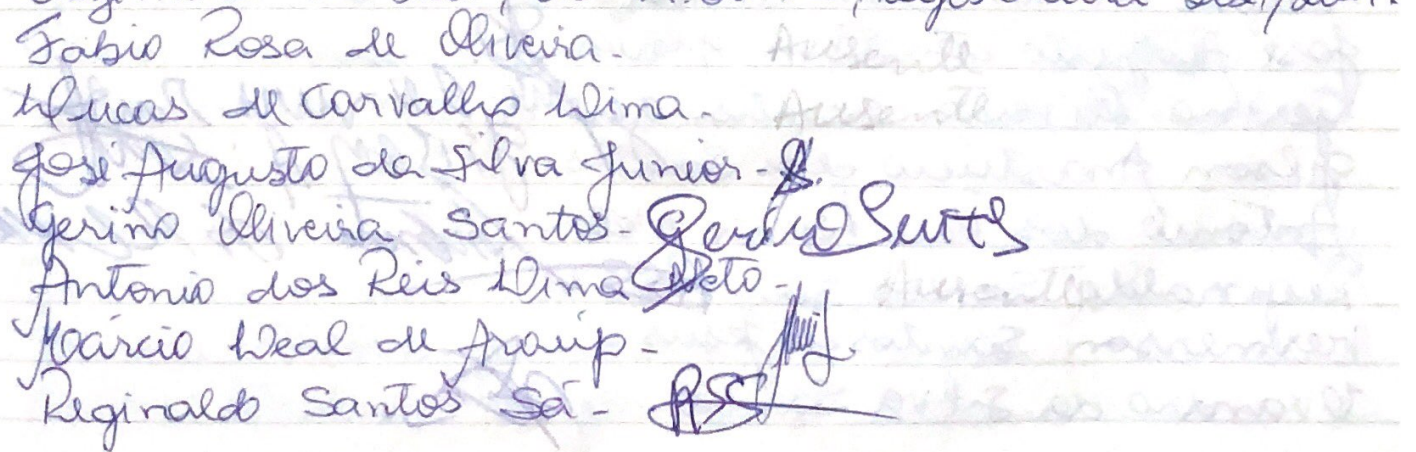 Fábio Rosa de Oliveira.
Lucas de Carvalho Lima.
José Augusto da Silva Junior -
Gerino Oliveira Santos -
Antonio dos Reis Lima Neto -
Márcio Leal de Araújo -
Reginaldo Santos Sá - RSS